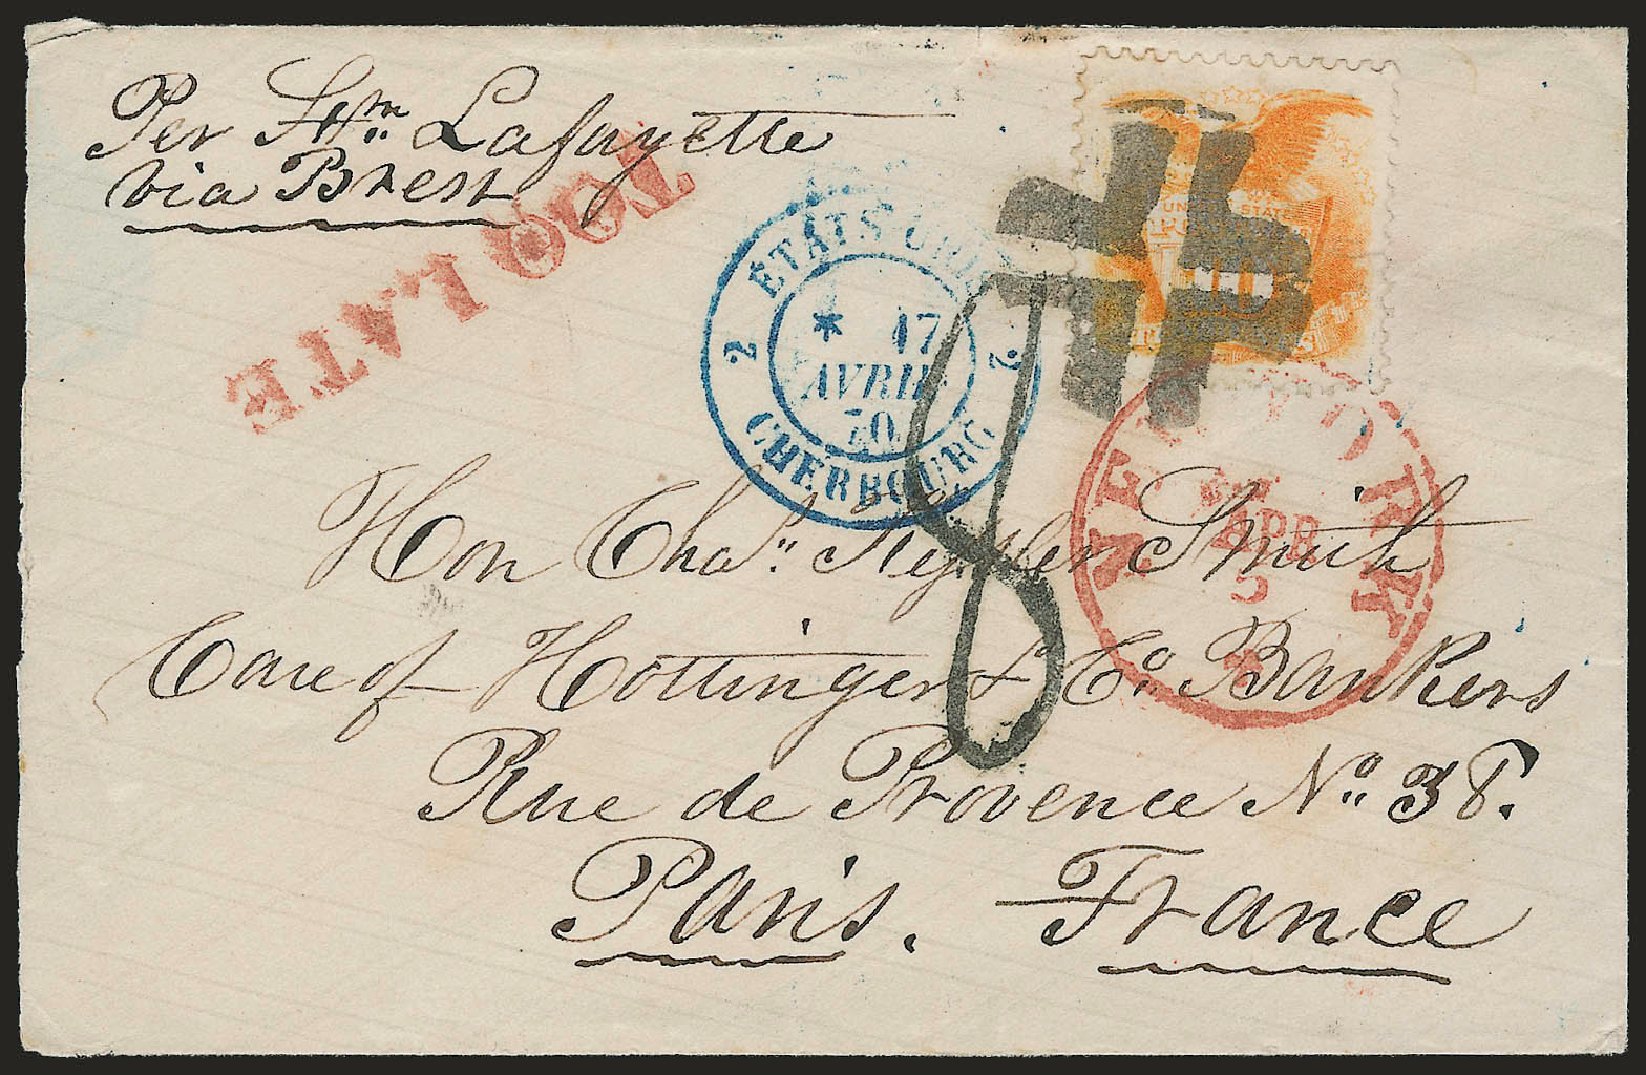 Per Stm Lafayette
via Brest
TOO LATE
2 ÉTATS-UNIS 2
* 17
AVRIL
70
CHERBOURG
UNITED STATES
10
NEW YORK
APR
5
8
Hon Chas. Smith
Care of Hottinger & Co Bankers
Rue de Provence No 38.
Paris. France